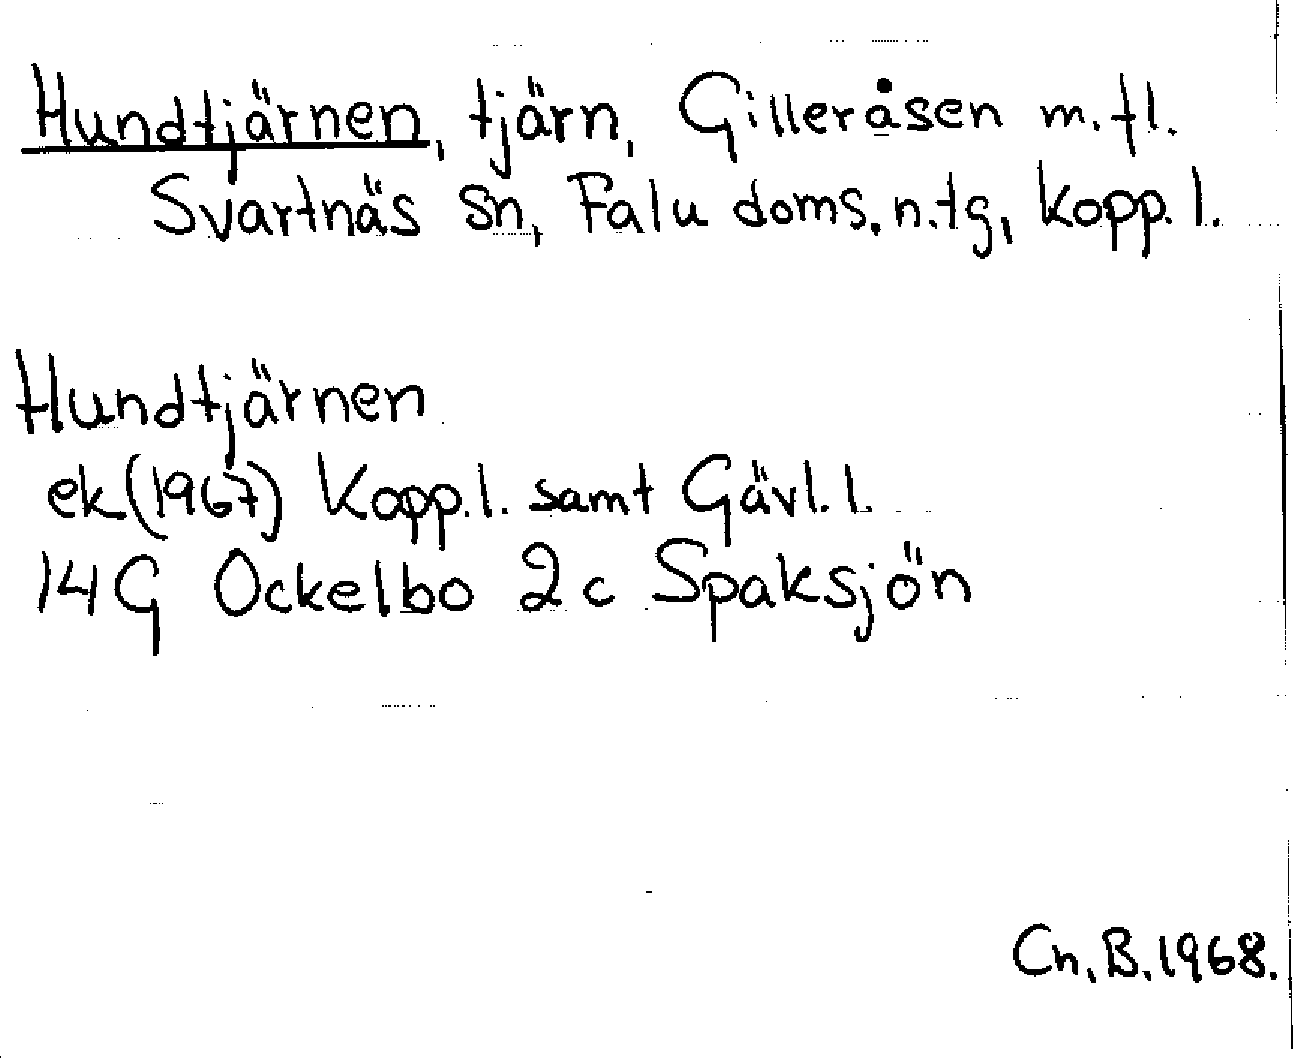 Hundtjärnen, tjärn, Gilleråsen m.fl.
Svartnäs sn, Falu doms. n. tg, Kopp. l.
Hundtjärnen
ek (1967) Kopp. l. samt Gävl. l.
14G Ockelbo 2c Spaksjön
Ch. B. 1968.